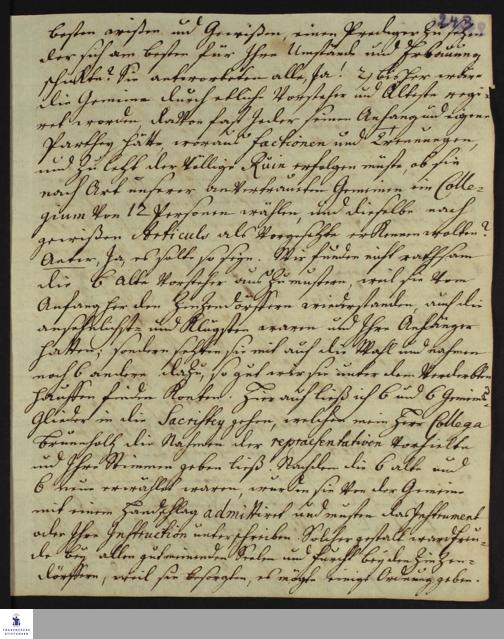 243
besten wüsten und Gewißen, einen Prediger zu setzen
der sich am besten für Ihre Umstände und Erbauung
schickte? Sie antworteten alle, Ja! 2) bisher wäre
die Gemeine durch etlich Vorsteher und Älteste regi-
ret worden, davon fast jeder seinen Anhang und eigene
Parthey hätte, woraus Factionen und Trennungen,
und zu letzt der völlige Ruin erfolgen müste, ob sie
nach Art unserer anvertrauten Gemeinen ein Colle-
gium von 12 Personen wählen, und dieselbe nach
gewißen Articuls als Vorgesetzte erkennen wolten?
Antw. Ja, es solte so seyn. Wir funden nicht rathsam
die 6 Alte Vorsteher aus zu mustern, weil sie von
Anfang her den Zinzendörffern wiederstanden, auch die
ansehnlichst- und Klügsten waren und Ihre Anhänger
hatten; sondern setzten sie mit auf die Wahl und nahmen
noch 6 andere dazu, so gut wir sie unter dem verderbten
Hauffen finden konten. Hierauf ließ ich 6 und 6 Gemeins-
Glieder in die Sacristey gehen, welchen mein Herr Collega
Brunnholtz die Nahmen der repræsentativen vorhielte
und Ihre Stimmen geben ließ. Nachdem die 6 alte und
6 neue erwählet waren, wurden sie von der Gemeine
mit einem Handschlag admittiret und musten das Instrument
oder Ihre Instruction unterschreiben. Solcher gestalt ward Freu-
de bey allen gutmeinenden Seelen und Furcht bey den Zinzen-
dörffern, weil sie besorgten, es mögte einige Ordnung geben.
FRANCKESCHE
STIFTUNGEN